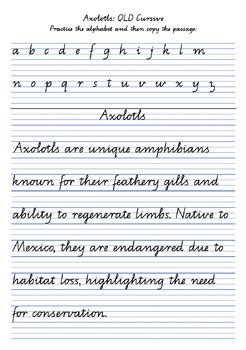 Axolotls: QLD Cursive
Practice the alphabet and then copy the passage:
a b c d e f g h i j k l m
n o p q r s t u v w x y z
Axolotls
Axolotls are unique amphibians
known for their feathery gills and
ability to regenerate limbs. Native to
Mexico, they are endangered due to
habitat loss, highlighting the need
for conservation.